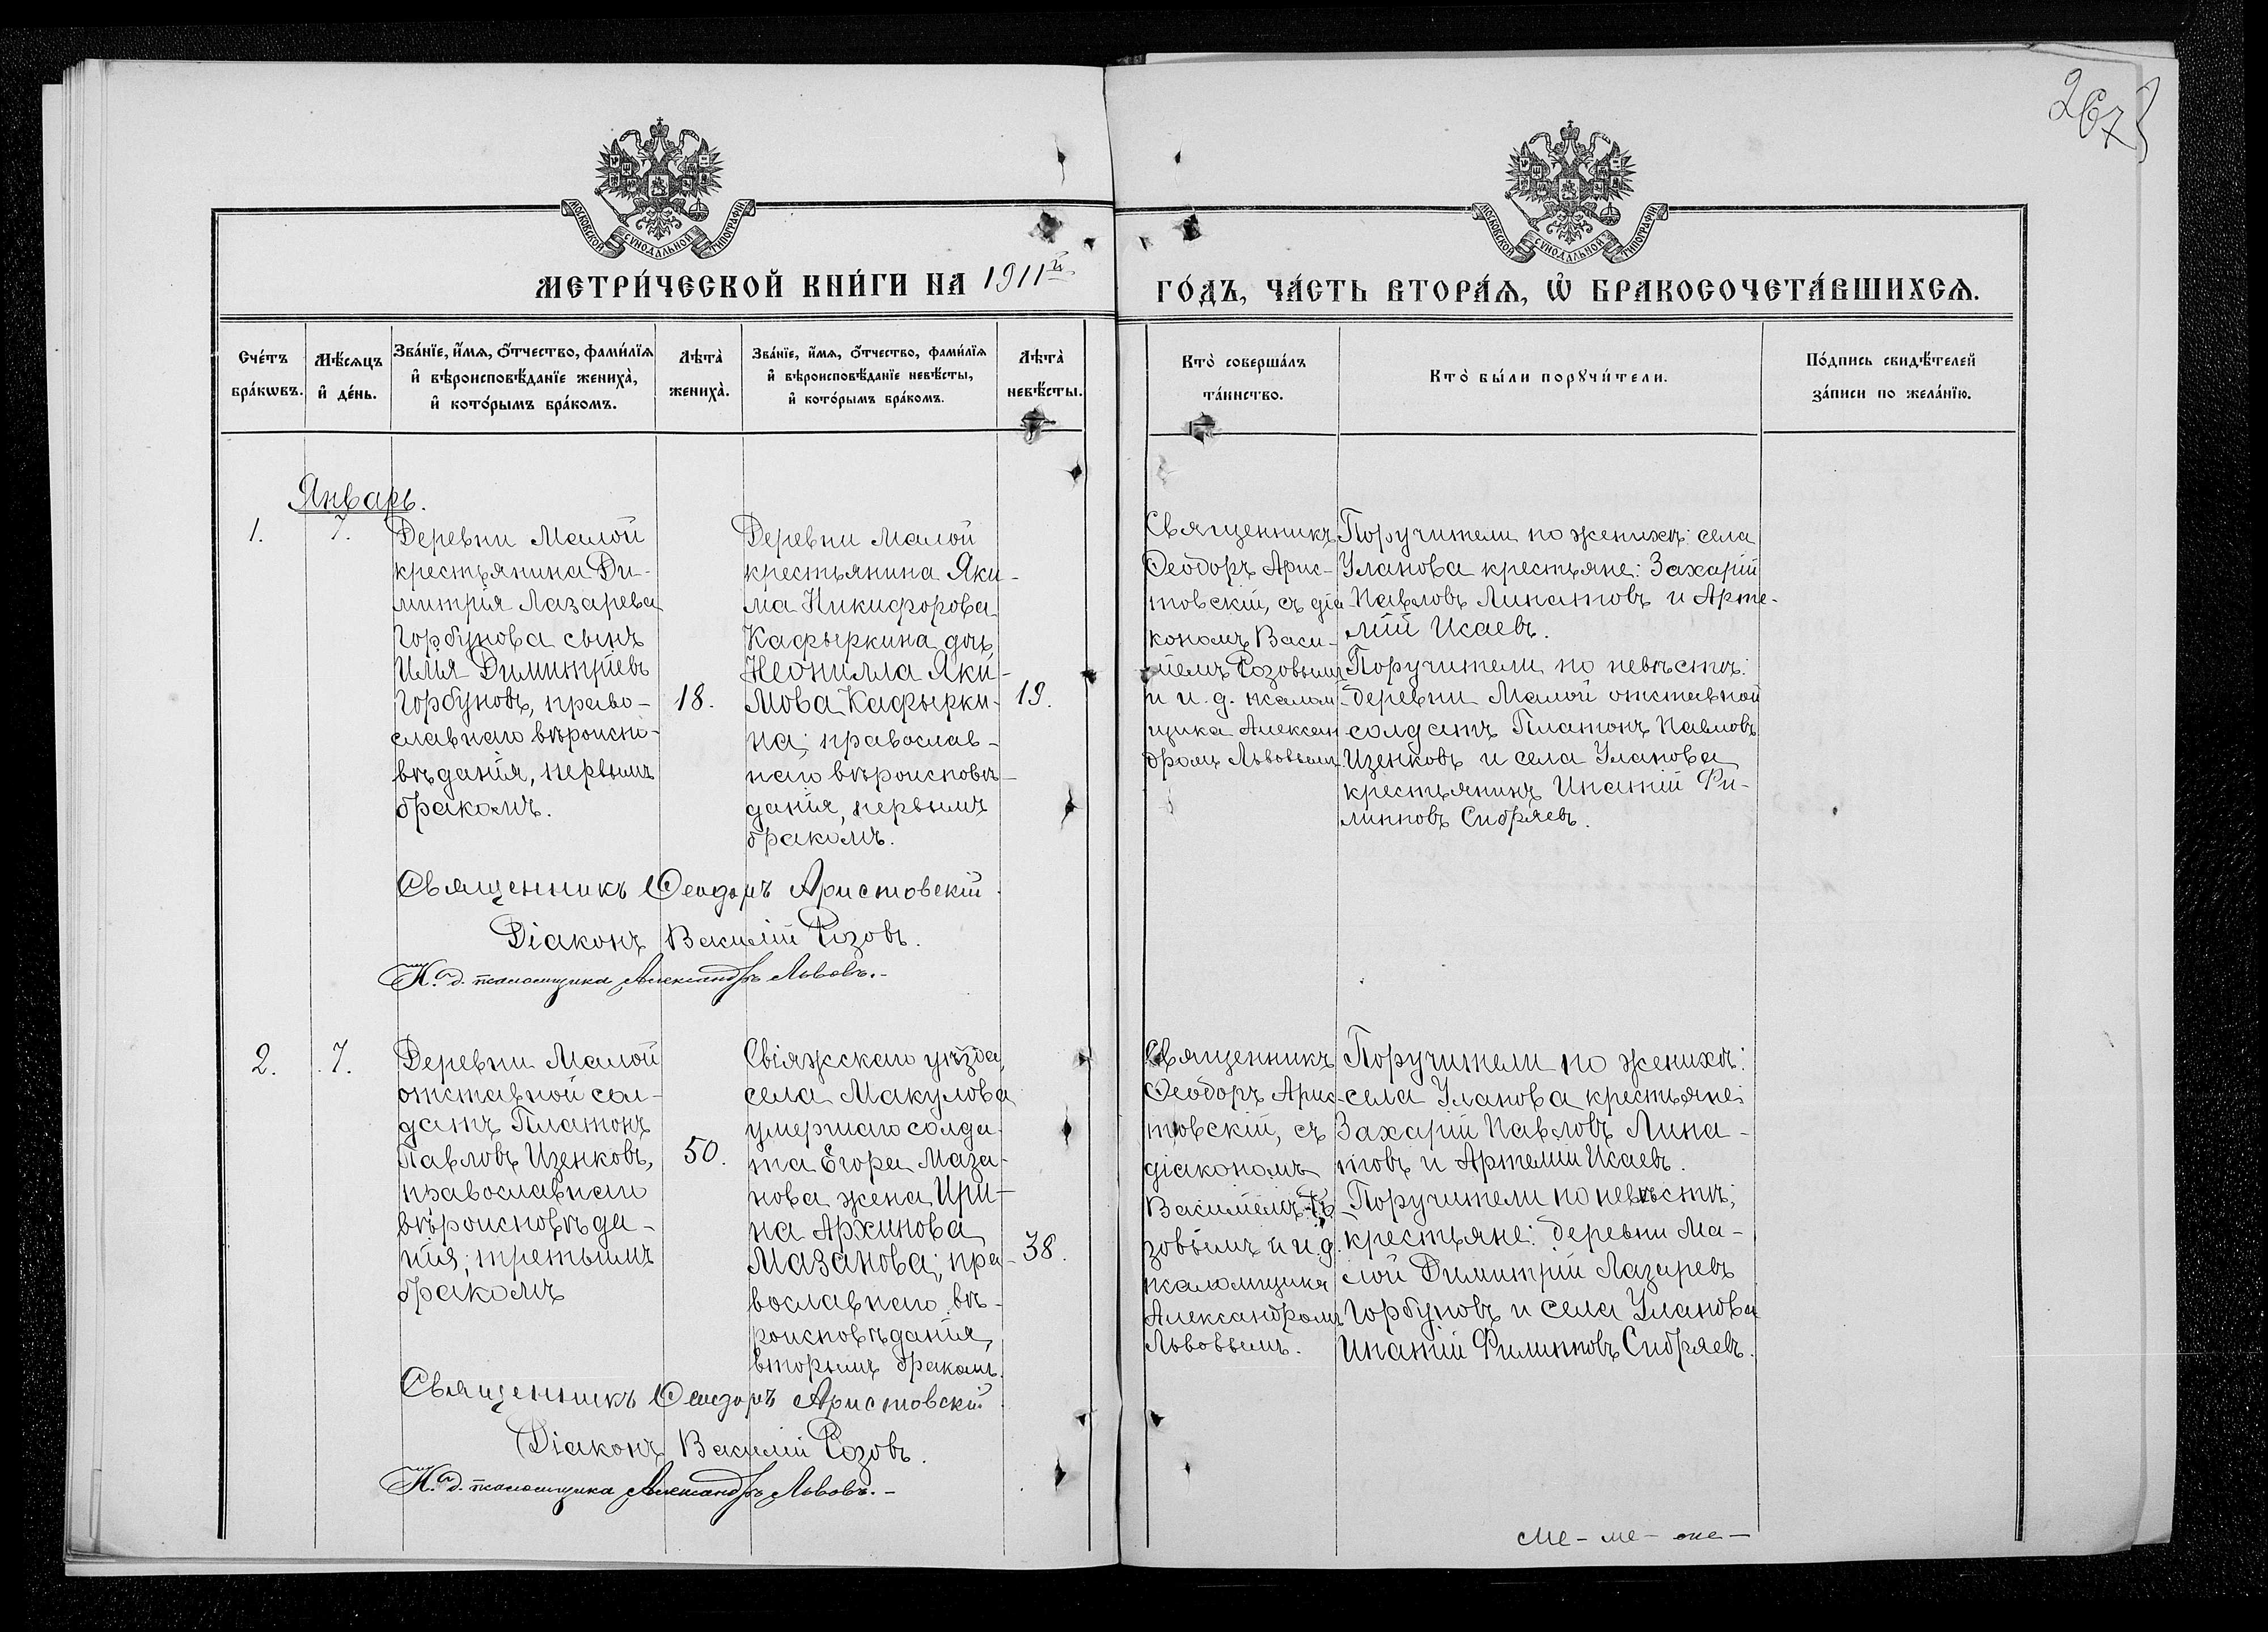 267
МОСКОВСКОЙ СѴНОДАЛЬНОЙ ТИПОГРАФІИ
МОСКОВСКОЙ СѴНОДАЛЬНОЙ ТИПОГРАФІИ
МЕТРИ́ЧЕСКОЙ КНИ́ГИ НА 1911й
ГО́ДЪ, ЧА́СТЬ ВТОРА́Ѧ, Ѡ҆ БРАКОСОЧЕТА́ВШИХСѦ.
Сче́тъ
бра́кѡвъ.
Мѣ́сѧцъ
и҆ де́нь.
Зва́нїе, и҆́мѧ, о҆́тчество, фами́лїѧ
и҆ вѣроисповѣ́данїе жениха̀,
и҆ кото́рымъ бра́комъ.
Лѣта̀
жениха̀.
Зва́нїе, и҆́мѧ, о҆́тчество, фами́лїѧ
и҆ вѣроисповѣ́данїе невѣ́сты,
и҆ кото́рымъ бра́комъ.
Лѣта̀
невѣ́сты.
Кто̀ соверша́лъ
та́инство.
Кто̀ бы́ли порꙋчи́тели.
По́дпись свидѣ́телей
за́писи по жела́нїю.
Январь.
1.
7.
Деревни Малой
крестьянина Ди-
митрія Лазарева
Горбунова сынъ
Илія Димитріевъ
Горбуновъ, право-
славнаго вѣроиспо-
вѣданія, первымъ
бракомъ.
18.
Деревни Малой
крестьянина Яки-
ма Никифорова
Кафыркина дочь
Неонилла Яки-
мова Кафырки-
на; православ-
наго вѣроисповѣ-
данія, первымъ
бракомъ.
19.
Священникъ
Ѳеодоръ Арис-
товскій, съ діа-
кономъ Васи-
ліемъ Розовымъ
и и. д. псалом-
щика Алексан-
дромъ Львовымъ.
Поручители по женихѣ: села
Уланова крестьяне: Захарій
Павловъ Липатовъ и Арте-
мій Исаевъ.
Поручители по невѣстѣ:
деревни Малой отставной
солдатъ Платонъ Павловъ
Изенковъ и села Уланова
крестьянинъ Ипатій Фи-
липповъ Сибряевъ.
Священникъ Ѳеодоръ Аристовскій
Діаконъ Василій Розовъ.
И. д. псаломщика Александръ Львовъ.-
2.
7.
Деревни Малой
отставной сол-
датъ Платонъ
Павловъ Изенковъ,
православнаго
вѣроисповѣда-
нія; третьимъ
бракомъ
50.
Свіяжскаго уѣзда,
села Макулова
умершаго солда-
та Егора Маза-
нова жена Ири-
на Архипова
Мазанова; пра-
вославнаго вѣ-
роисповѣданія,
вторымъ бракомъ.
38.
Священникъ
Ѳеодоръ Арис-
товскій, съ
діакономъ
Василіемъ Ро-
зовымъ и и. д.
псаломщика
Александромъ
Львовымъ.
Поручители по женихѣ:
села Уланова крестьяне:
Захарій Павловъ Липа-
товъ и Артемій Исаевъ.
Поручители по невѣстѣ;
крестьяне: деревни Ма-
лой Димитрій Лазаревъ
Горбуновъ и села Уланова
Ипатій Филипповъ Сибряевъ.
Священникъ Ѳеодоръ Аристовскій
Діаконъ Василій Розовъ.
И. д. псаломщика Александръ Львовъ.-